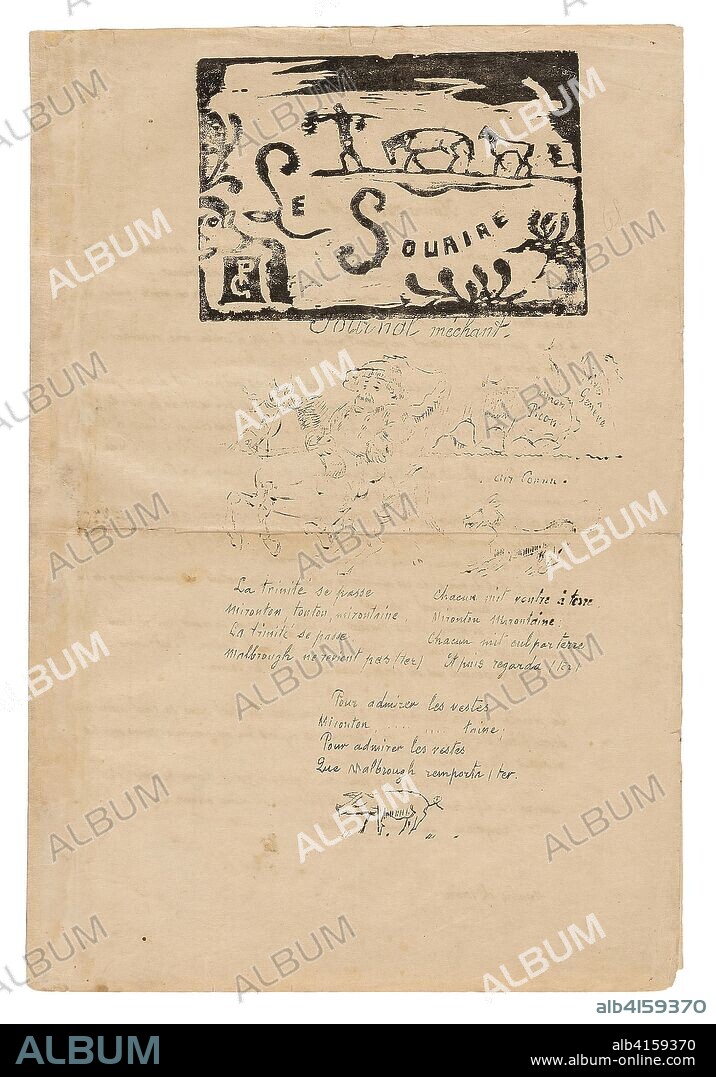 LE SOURIRE
PG
Journal méchant.
Picon
Genièvre
air Connu.
La trinité se passe
Mironton tonton, mirontaine,
La trinité se passe
Malbrough ne revient pas (ter)
Chacun mit ventre à terre
Mironton Mirontaine;
Chacun mit cul par terre
Et puis regarda (ter)
Pour admirer les vestes
Mironton, ... ... taine;
Pour admirer les vestes
Que Malbrough remporta (ter.
ALBUM
alb4159370
ALBUM
alb4159370
www.album-online.com